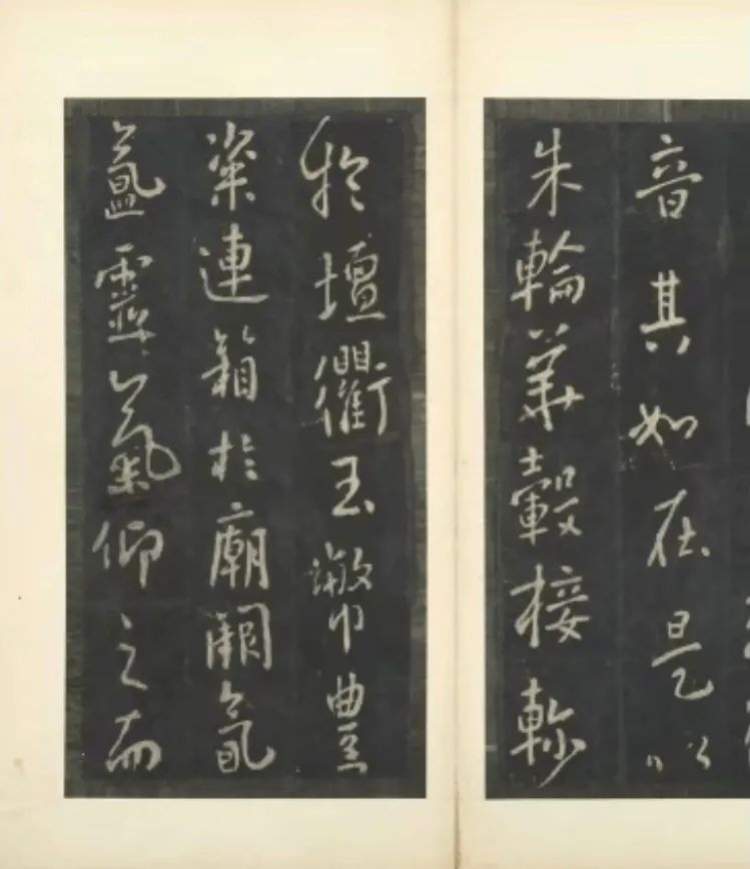 音其如在是以
朱輪華轂接軫
於壇衢玉幣豐
粢連箱於廟闕氤
氳靈氣仰之而